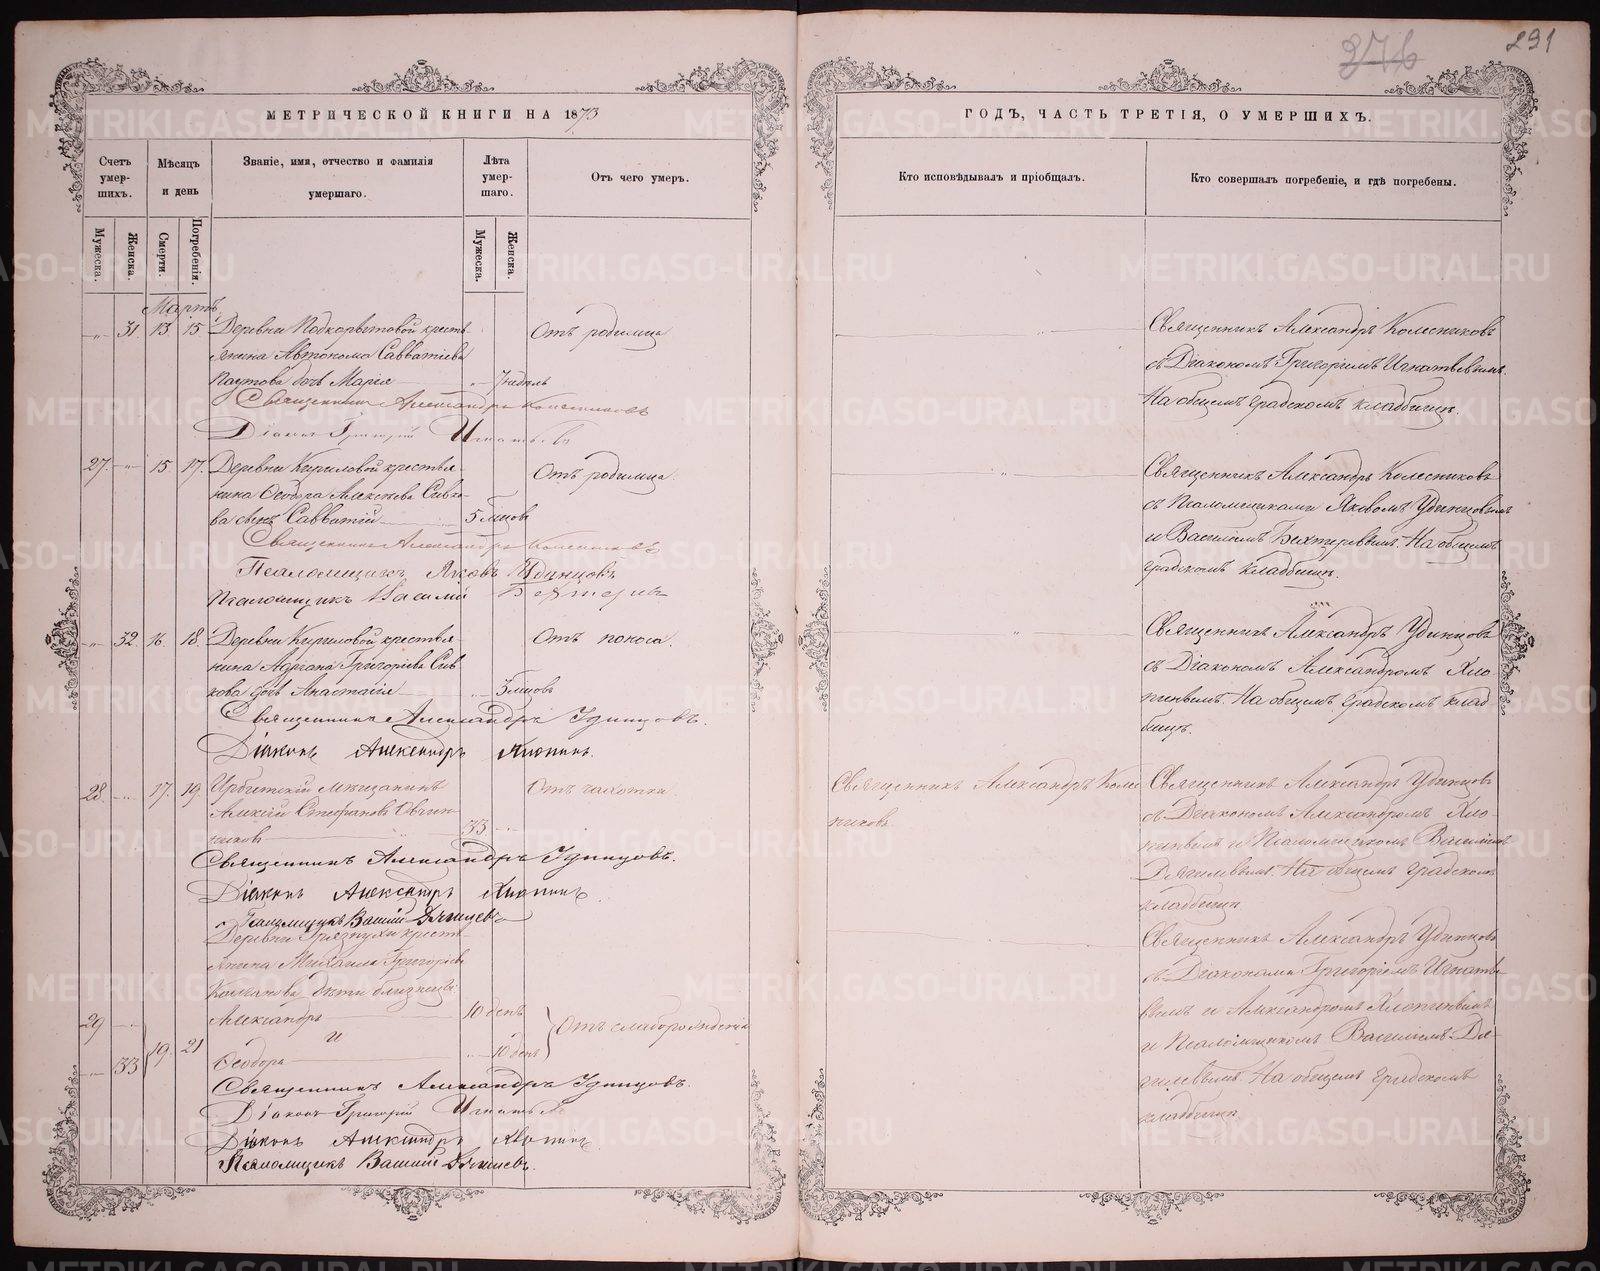 291
МЕТРИЧЕСКОЙ КНИГИ НА 1873
Счетъ умер-шихъ.
Мѣсяцъ и день
Званіе, имя, отчество и фамилія умершаго.
Лѣта умер-шаго.
Отъ чего умеръ.
Мужеска.
Женска.
Смерти.
Погребенія.
Мужеска.
Женска.
Мартъ
31 13 15 Деревни Подкорытовой кресть-
янина Автонома Савватіева
Паутова дочь Марія 7 недѣль
Отъ родимца
Священникъ Александръ Колесниковъ
Діаконъ Григорій Игнатьевъ
27. 15. 17. Деревни Кириловой крестья-
нина Ѳеодора Алексѣева Сивко-
ва сынъ Савватій 5 мцовъ
Отъ родимца.
Священникъ Александръ Колесниковъ
Псаломщикъ Яковъ Удинцовъ
Псаломщикъ Василій Бехтеревъ
32. 16. 18. Деревни Кириловой крестья-
нина Григорьева Сив-
кова дочь Анастасія 3 мцовъ
Отъ поноса.
Священникъ Александръ Удинцовъ.
Діаконъ Александръ Хлопинъ.
28. 17. 19. Ирбитскій мѣщанинъ
Алексій Стефановъ Овчин-
никовъ 33.
Отъ чахотки.
Священникъ Александръ Удинцовъ.
Діаконъ Александръ Хлопинъ.
Псаломщикъ Василій Дягилевъ
Деревни Грязнухи кресть-
янина Михаила Григорьева
дѣти близнецы:
29 Александръ 10 день
19. 21 и
33 Ѳеодора 10 день
Отъ слаборожденія
Священникъ Александръ Удинцовъ.
Діаконъ Григорій Игнатьевъ
Діаконъ Александръ Хлопинъ
Псаломщикъ Василій Дягилевъ.
ГОДЪ, ЧАСТЬ ТРЕТІЯ, О УМЕРШИХЪ.
Кто исповѣдывалъ и пріобщалъ.
Кто совершалъ погребеніе, и гдѣ погребены.
Священникъ Александръ Колесниковъ
съ Діакономъ Григоріемъ Игнатьевымъ.
На общемъ градскомъ кладбищѣ.
Священникъ Александръ Колесниковъ
съ Псаломщиками Яковомъ Удинцовымъ
и Василіемъ Бехтеревымъ. На общемъ
градскомъ кладбищѣ.
Священникъ Александръ Удинцовъ
съ Діакономъ Александромъ Хло-
пинымъ. На общемъ градскомъ клад-
бищѣ.
Священникъ Александръ Колес
никовъ
Священникъ Александръ Удинцовъ
съ Діакономъ Александромъ Хло-
пинымъ и Псаломщикомъ Василіемъ
Дягилевымъ. На общемъ градскомъ
кладбищѣ
Священникъ Александръ Удинцовъ
съ Діаконами Григоріемъ Игнатье-
вымъ и Александромъ Хлопинымъ
и Псаломщикомъ Василіемъ Дя-
гилевымъ. На общемъ градскомъ
кладбищѣ
METRIKI.GASO-URAL.RU